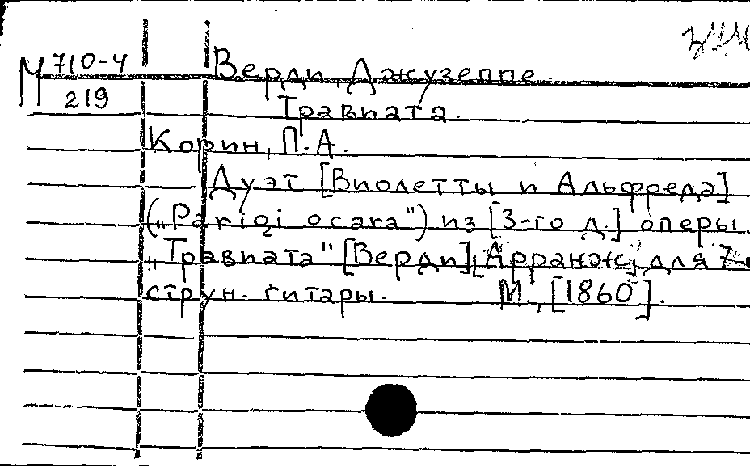 М 710-4
219
Верди, Джузеппе
Травиата.
Корин, П.А.
Дуэт [Виолетты и Альфреда]
(„Parigi o cara") из [3-го д.] оперы
„Травиата" [Верди], [Арранж.] для 7-
струн. гитары. М., [1860].